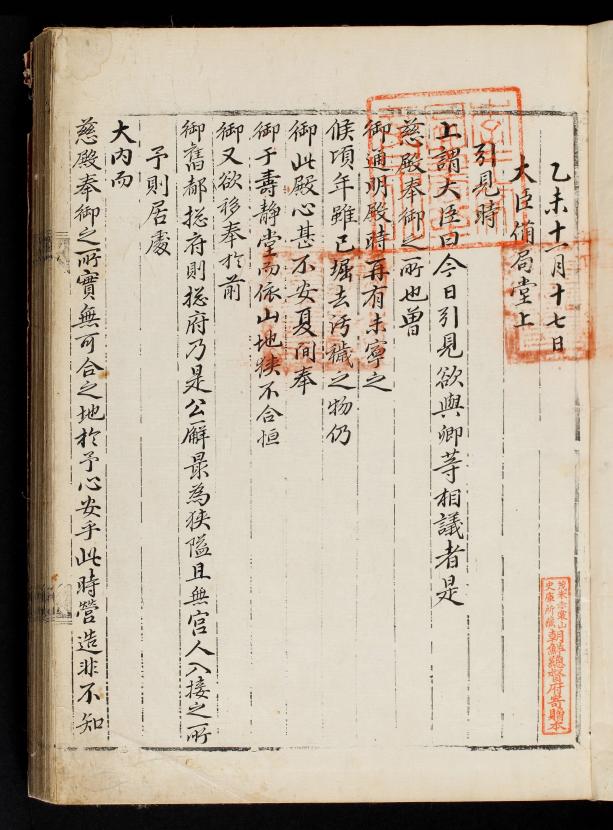 乙未十一月十七日
大臣備局堂上
引見時
上謂大臣曰今日引見欲與卿等相議者是
慈殿奉御之所也曽
御通明殿時再有未寧之
候頃年雖已堀去汚穢之物仍
御此殿心甚不安夏间奉
御于壽静堂而依山地狹不合恒
御又欲移奉扵前
御舊都捴府則捴府乃是公廨最為狹隘且無宮人入接之所
予則居處
大内而
慈殿奉御之所實無可合之地扵予心安乎此時營造非不知
茂朱赤裳山
史庫所藏
朝鮮總督府寄贈本